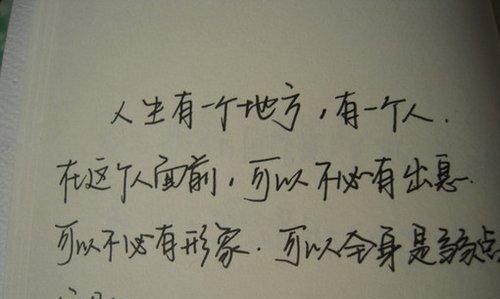 人生有一个地方，有一个人.
在这个人面前，可以不必有出息.
可以不必有形象.可以全身是弱点